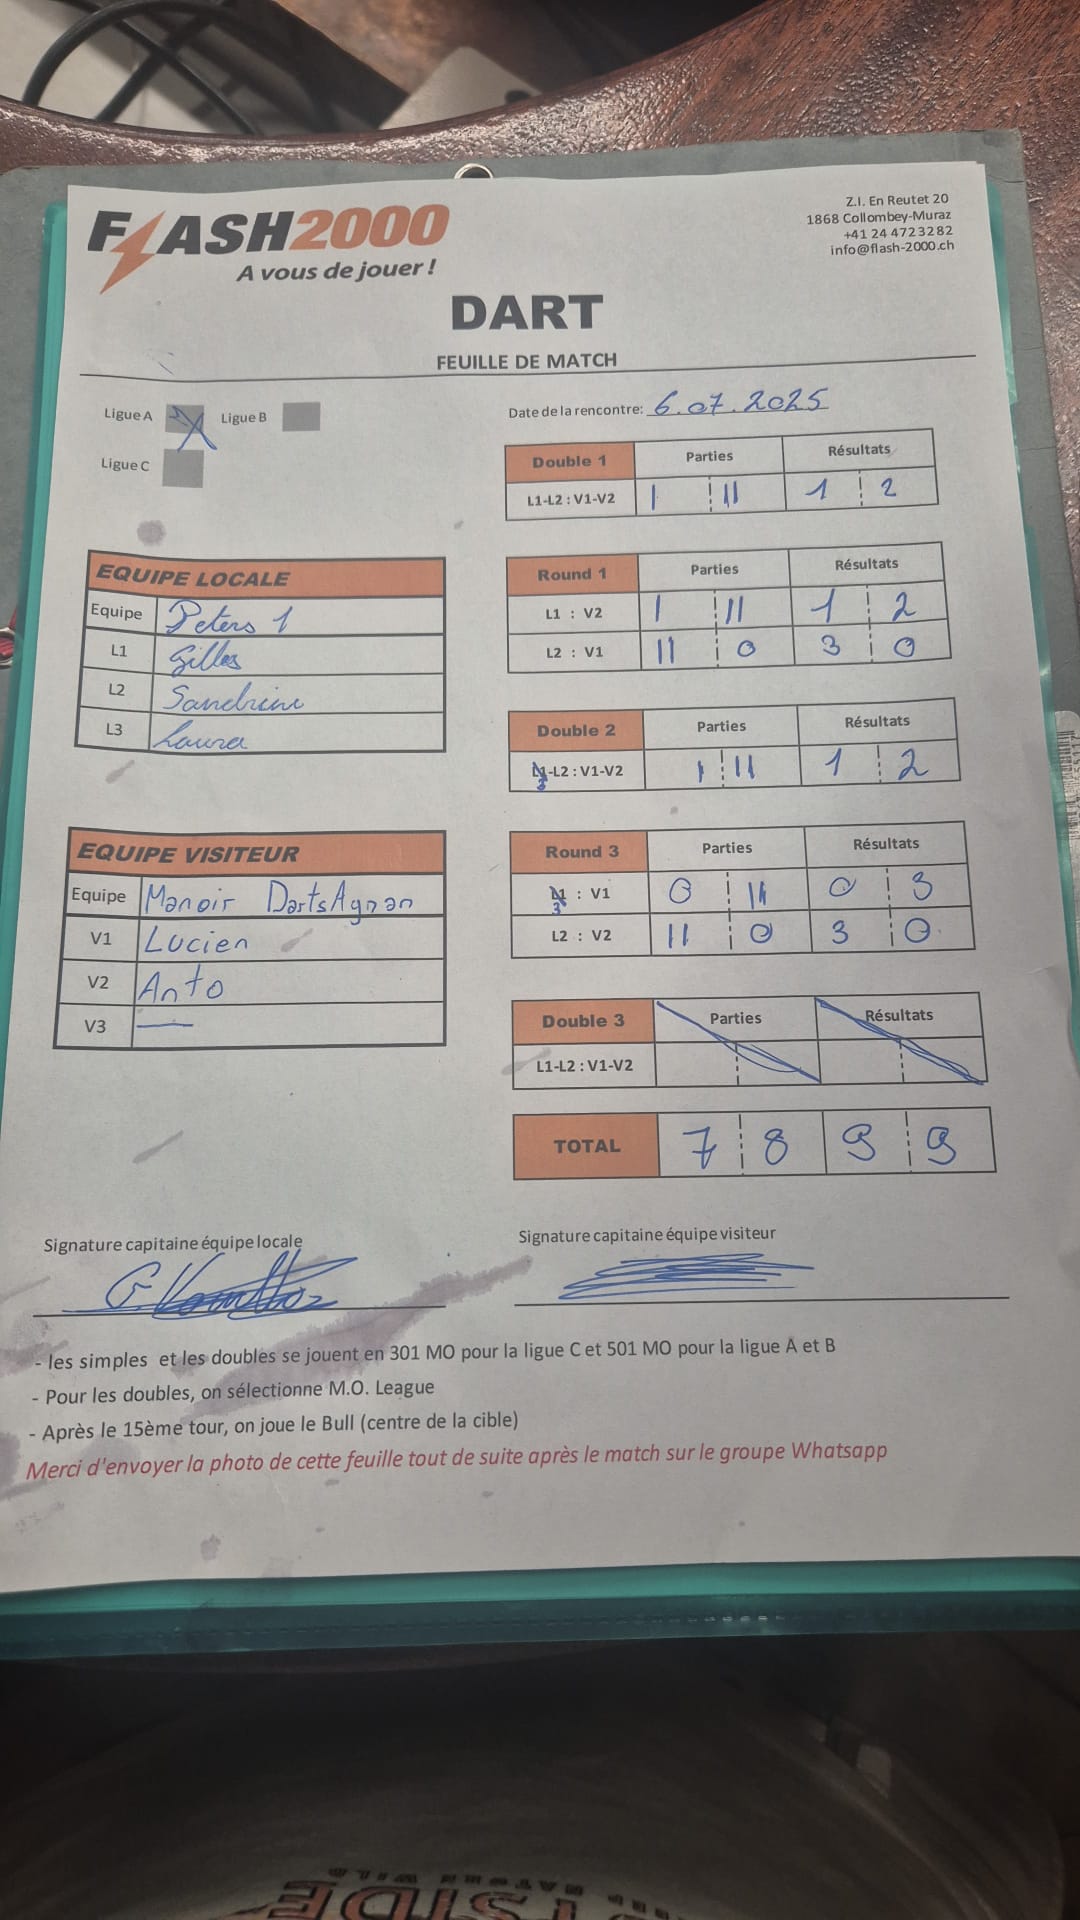 FLASH2000
A vous de jouer !
Z.I. En Reutet 20
1868 Collombey-Muraz
+41 24 472 32 82
info@flash-2000.ch
DART
FEUILLE DE MATCH
Ligue A X Ligue B
Ligue C
Date de la rencontre: 6.07.2025
Double 1 Parties Résultats
L1-L2 : V1-V2 I II 1 2
EQUIPE LOCALE
Equipe Peters 1
L1 Gilles
L2 Sandrine
L3 Laura
Round 1 Parties Résultats
L1 : V2 I II 1 2
L2 : V1 II 0 3 0
Double 2 Parties Résultats
3-L2 : V1-V2 I II 1 2
EQUIPE VISITEUR
Equipe Manoir DartsAgnan
V1 Lucien
V2 Anto
V3 —
Round 3 Parties Résultats
3 : V1 0 II 0 3
L2 : V2 II 0 3 0
Double 3 Parties Résultats
L1-L2 : V1-V2
TOTAL 7 8 9 9
Signature capitaine équipe locale
Signature capitaine équipe visiteur
- les simples et les doubles se jouent en 301 MO pour la ligue C et 501 MO pour la ligue A et B
- Pour les doubles, on sélectionne M.O. League
- Après le 15ème tour, on joue le Bull (centre de la cible)
Merci d'envoyer la photo de cette feuille tout de suite après le match sur le groupe Whatsapp